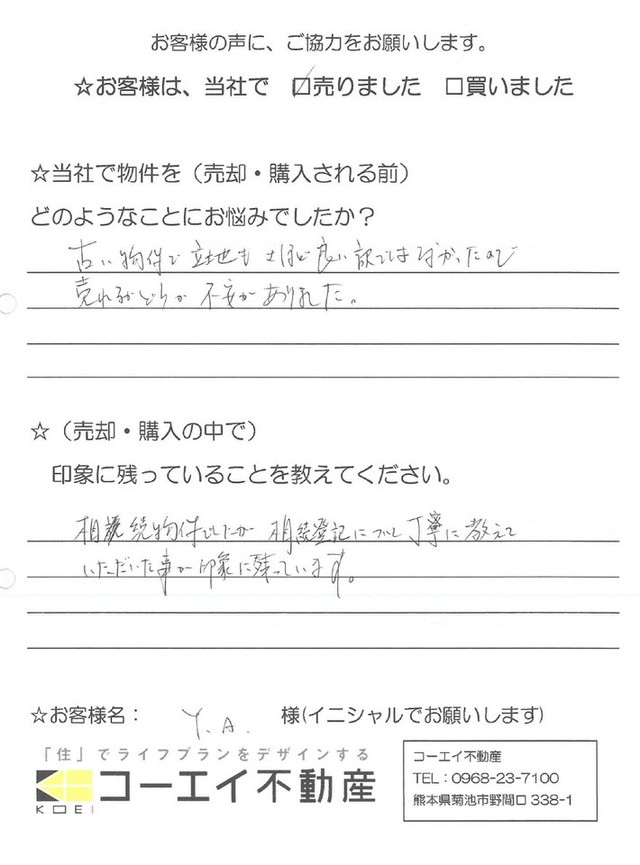 お客様の声に、ご協力をお願いします。
☆お客様は、当社で ☑売りました □買いました
☆当社で物件を（売却・購入される前）
どのようなことにお悩みでしたか？
古い物件で立地もさほど良い訳ではなかったので
売れるかどうか不安がありました。
☆（売却・購入の中で）
印象に残っていることを教えてください。
相続物件でしたが相続登記について丁寧に教えて
いただいた事が印象に残っています。
☆お客様名： Y.A. 様(イニシャルでお願いします)
「住」でライフプランをデザインする
KOEI コーエイ不動産
コーエイ不動産
TEL：0968-23-7100
熊本県菊池市野間口338-1